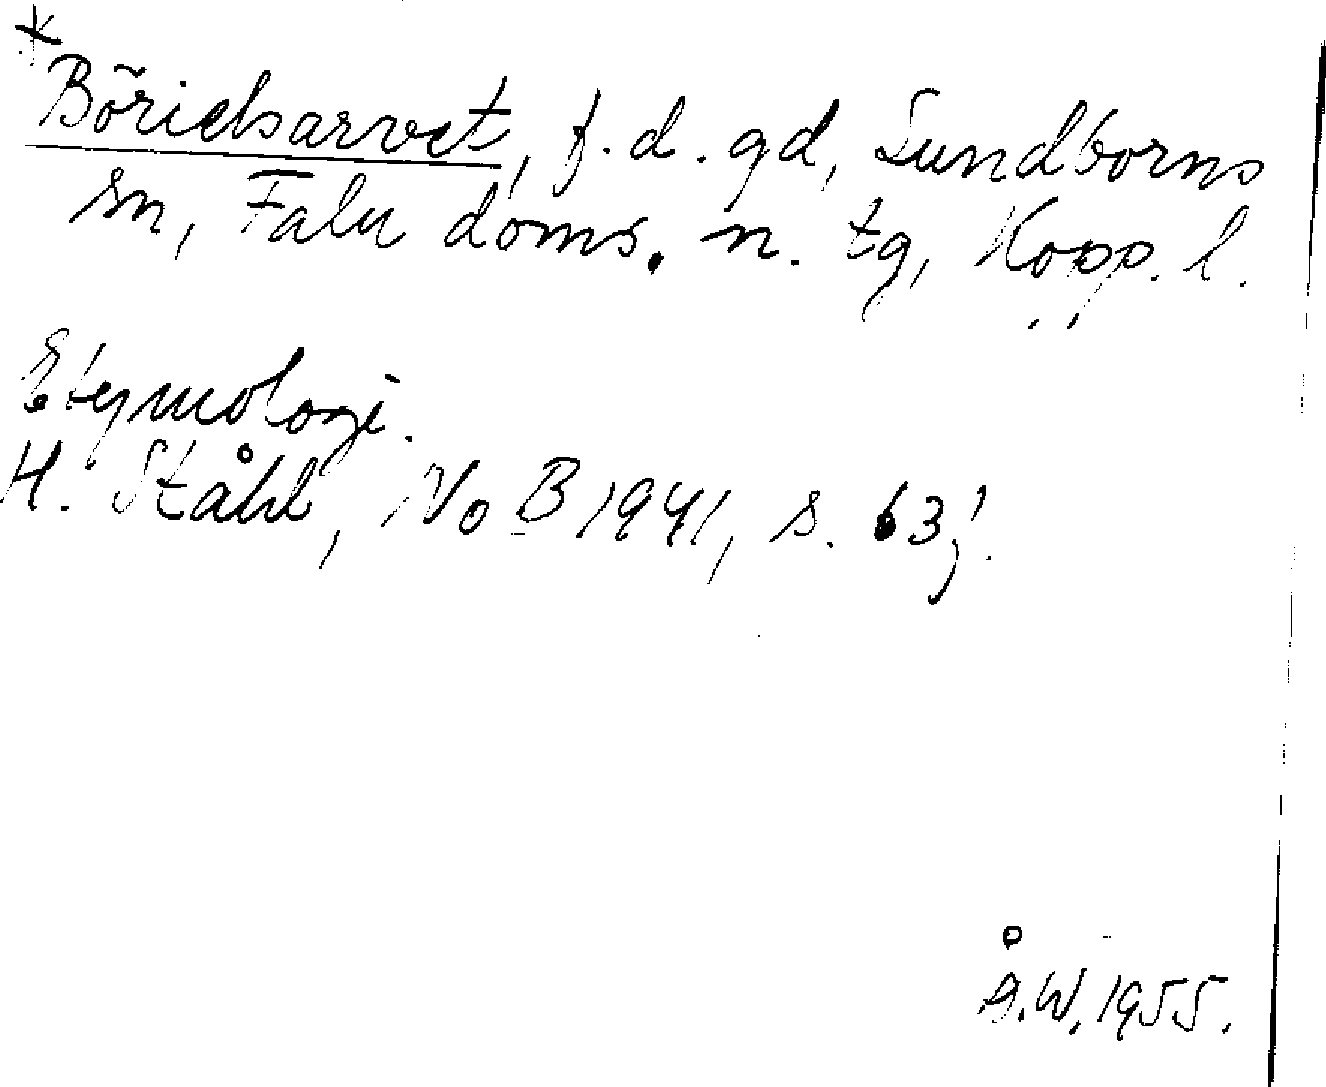 *
Börielsarvet, f.d. gd, Sundborns
sn, Falu doms. n. tg, Kopp. l.
Etymologi.
H. Ståhl, NoB 1941, s. 63,
Å.W. 1955.